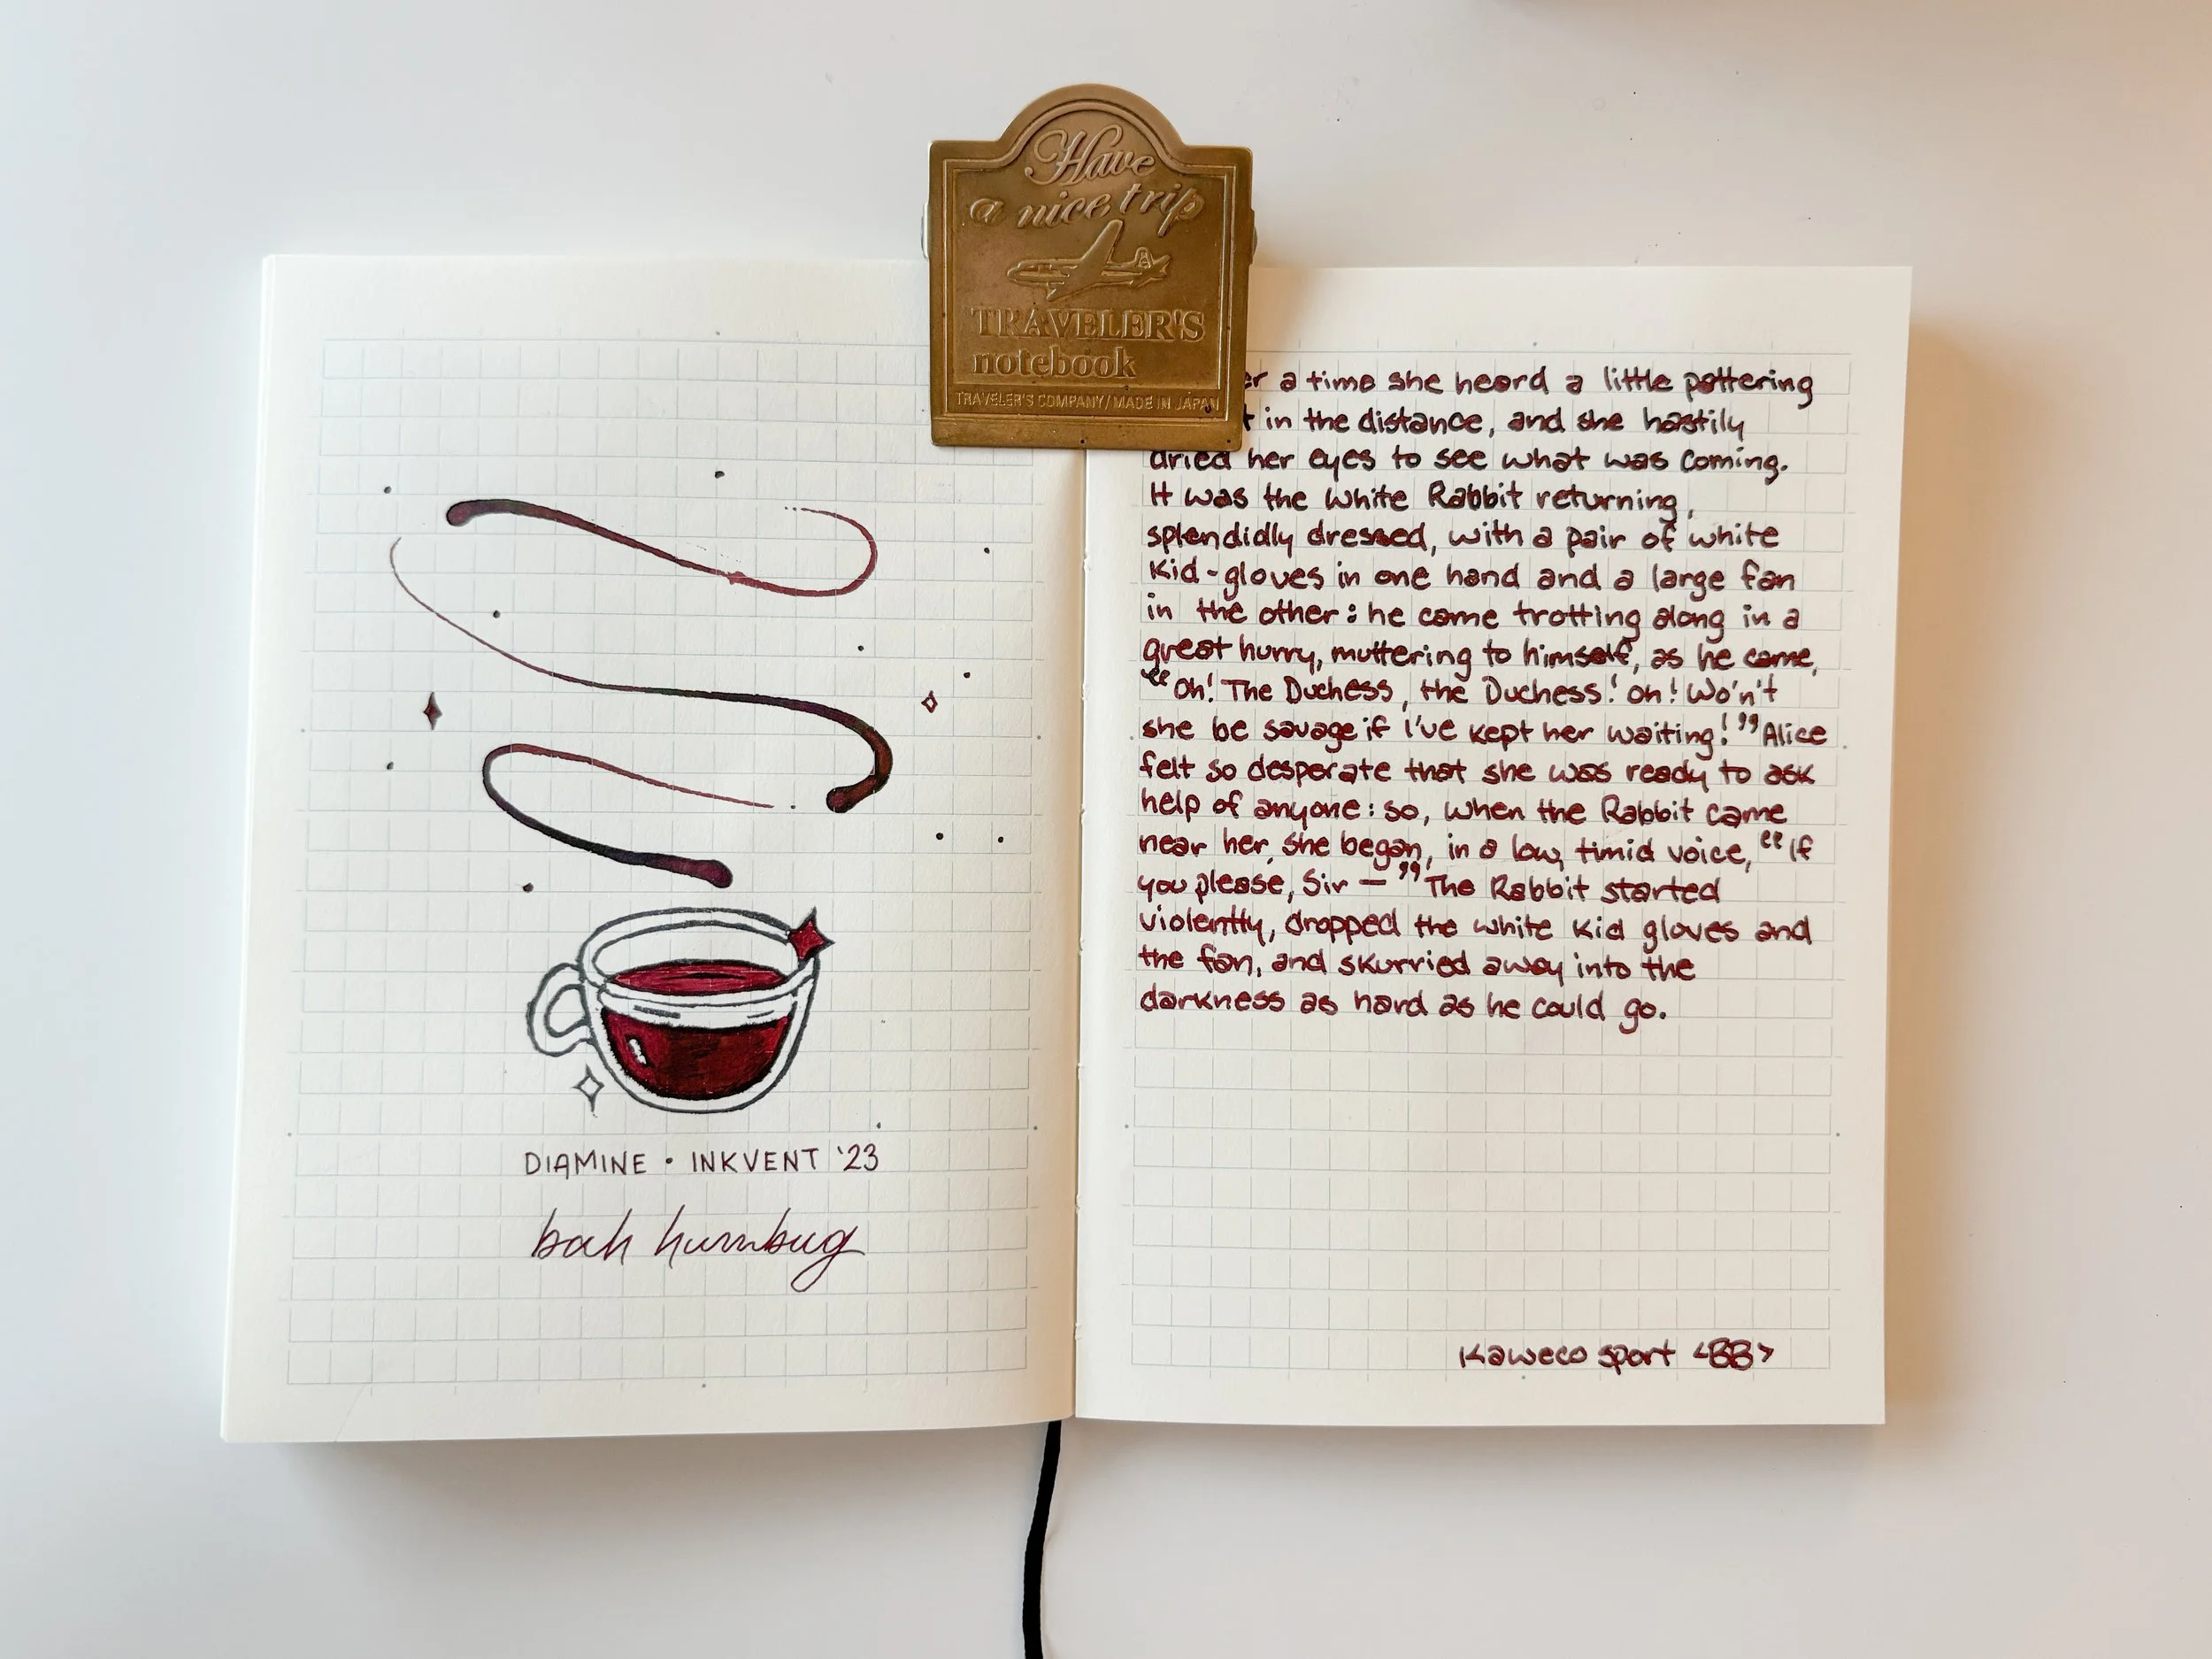 Have
a nice trip
TRAVELER'S
notebook
TRAVELER'S COMPANY/MADE IN JAPAN
DIAMINE • INKVENT '23
bah humbug
er a time she heard a little pattering
t in the distance, and she hastily
dried her eyes to see what was coming.
It was the White Rabbit returning,
splendidly dressed, with a pair of white
kid-gloves in one hand and a large fan
in the other: he came trotting along in a
great hurry, muttering to himself, as he came,
“Oh! The Duchess, the Duchess! Oh! Wo'n't
she be savage if I've kept her waiting!” Alice
felt so desperate that she was ready to ask
help of anyone: so, when the Rabbit came
near her, she began, in a low, timid voice, “If
you please, Sir —” The Rabbit started
violently, dropped the white kid gloves and
the fan, and skurried away into the
darkness as hard as he could go.
Kaweco sport <BB>